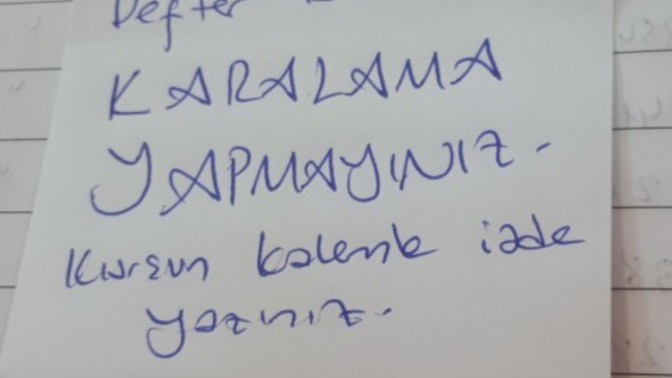 Defter
KARALAMA
YAPMAYINIZ.
Kurşun kalemle iade
yazınız.